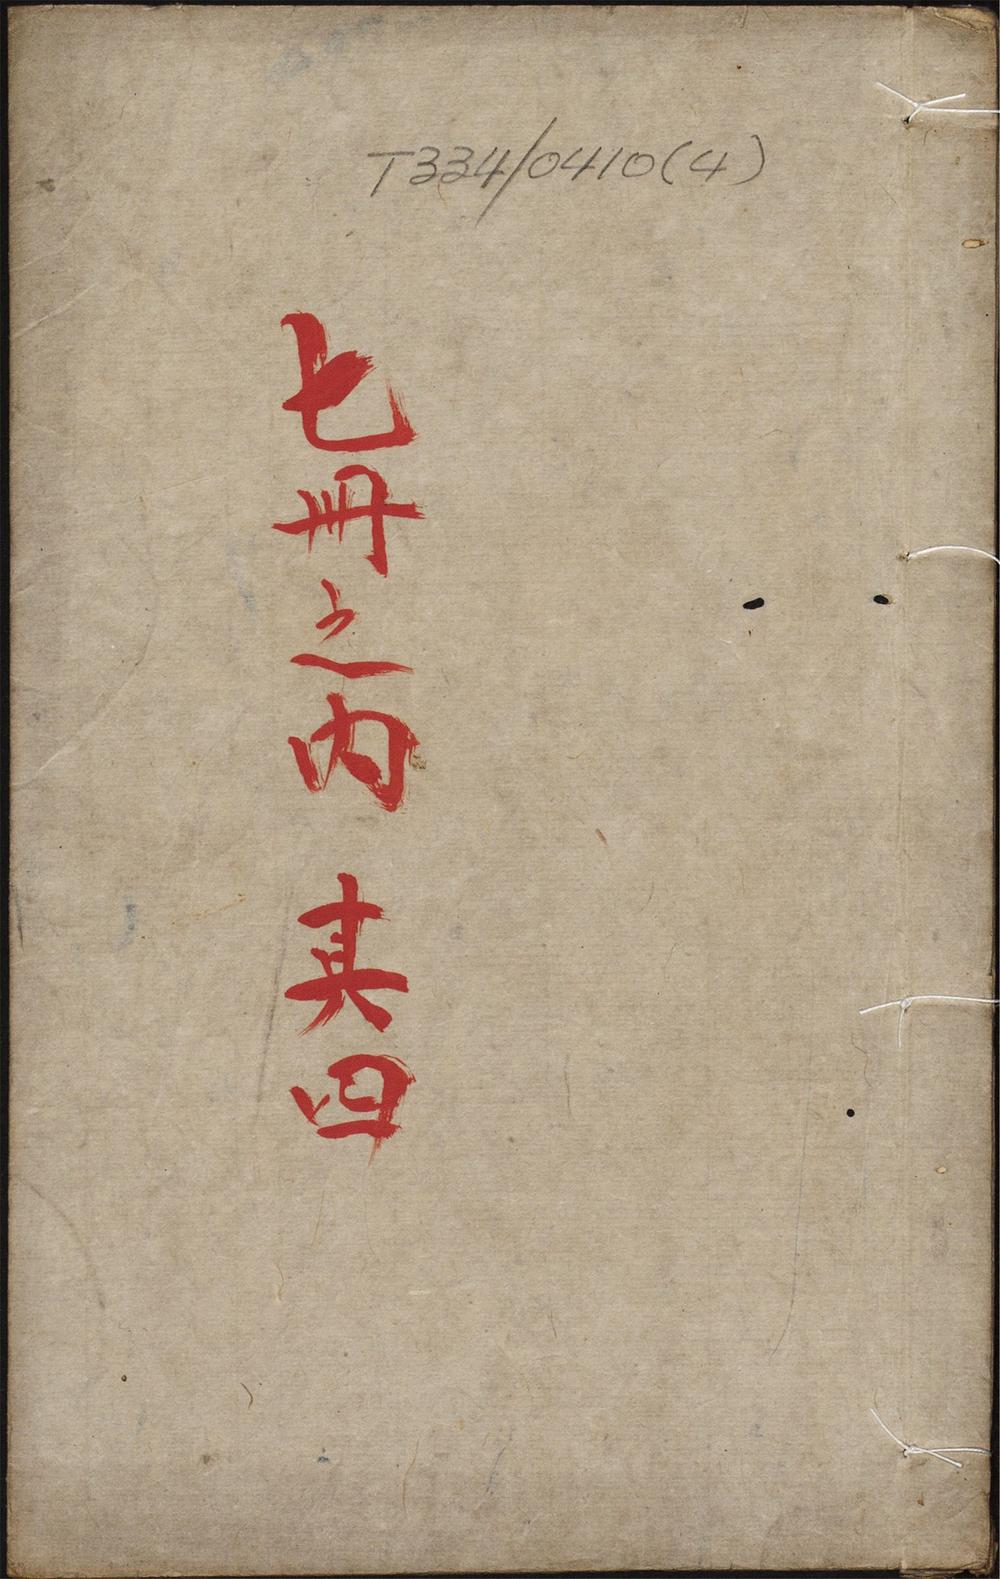 T334/0410(4)
七冊之内 其四